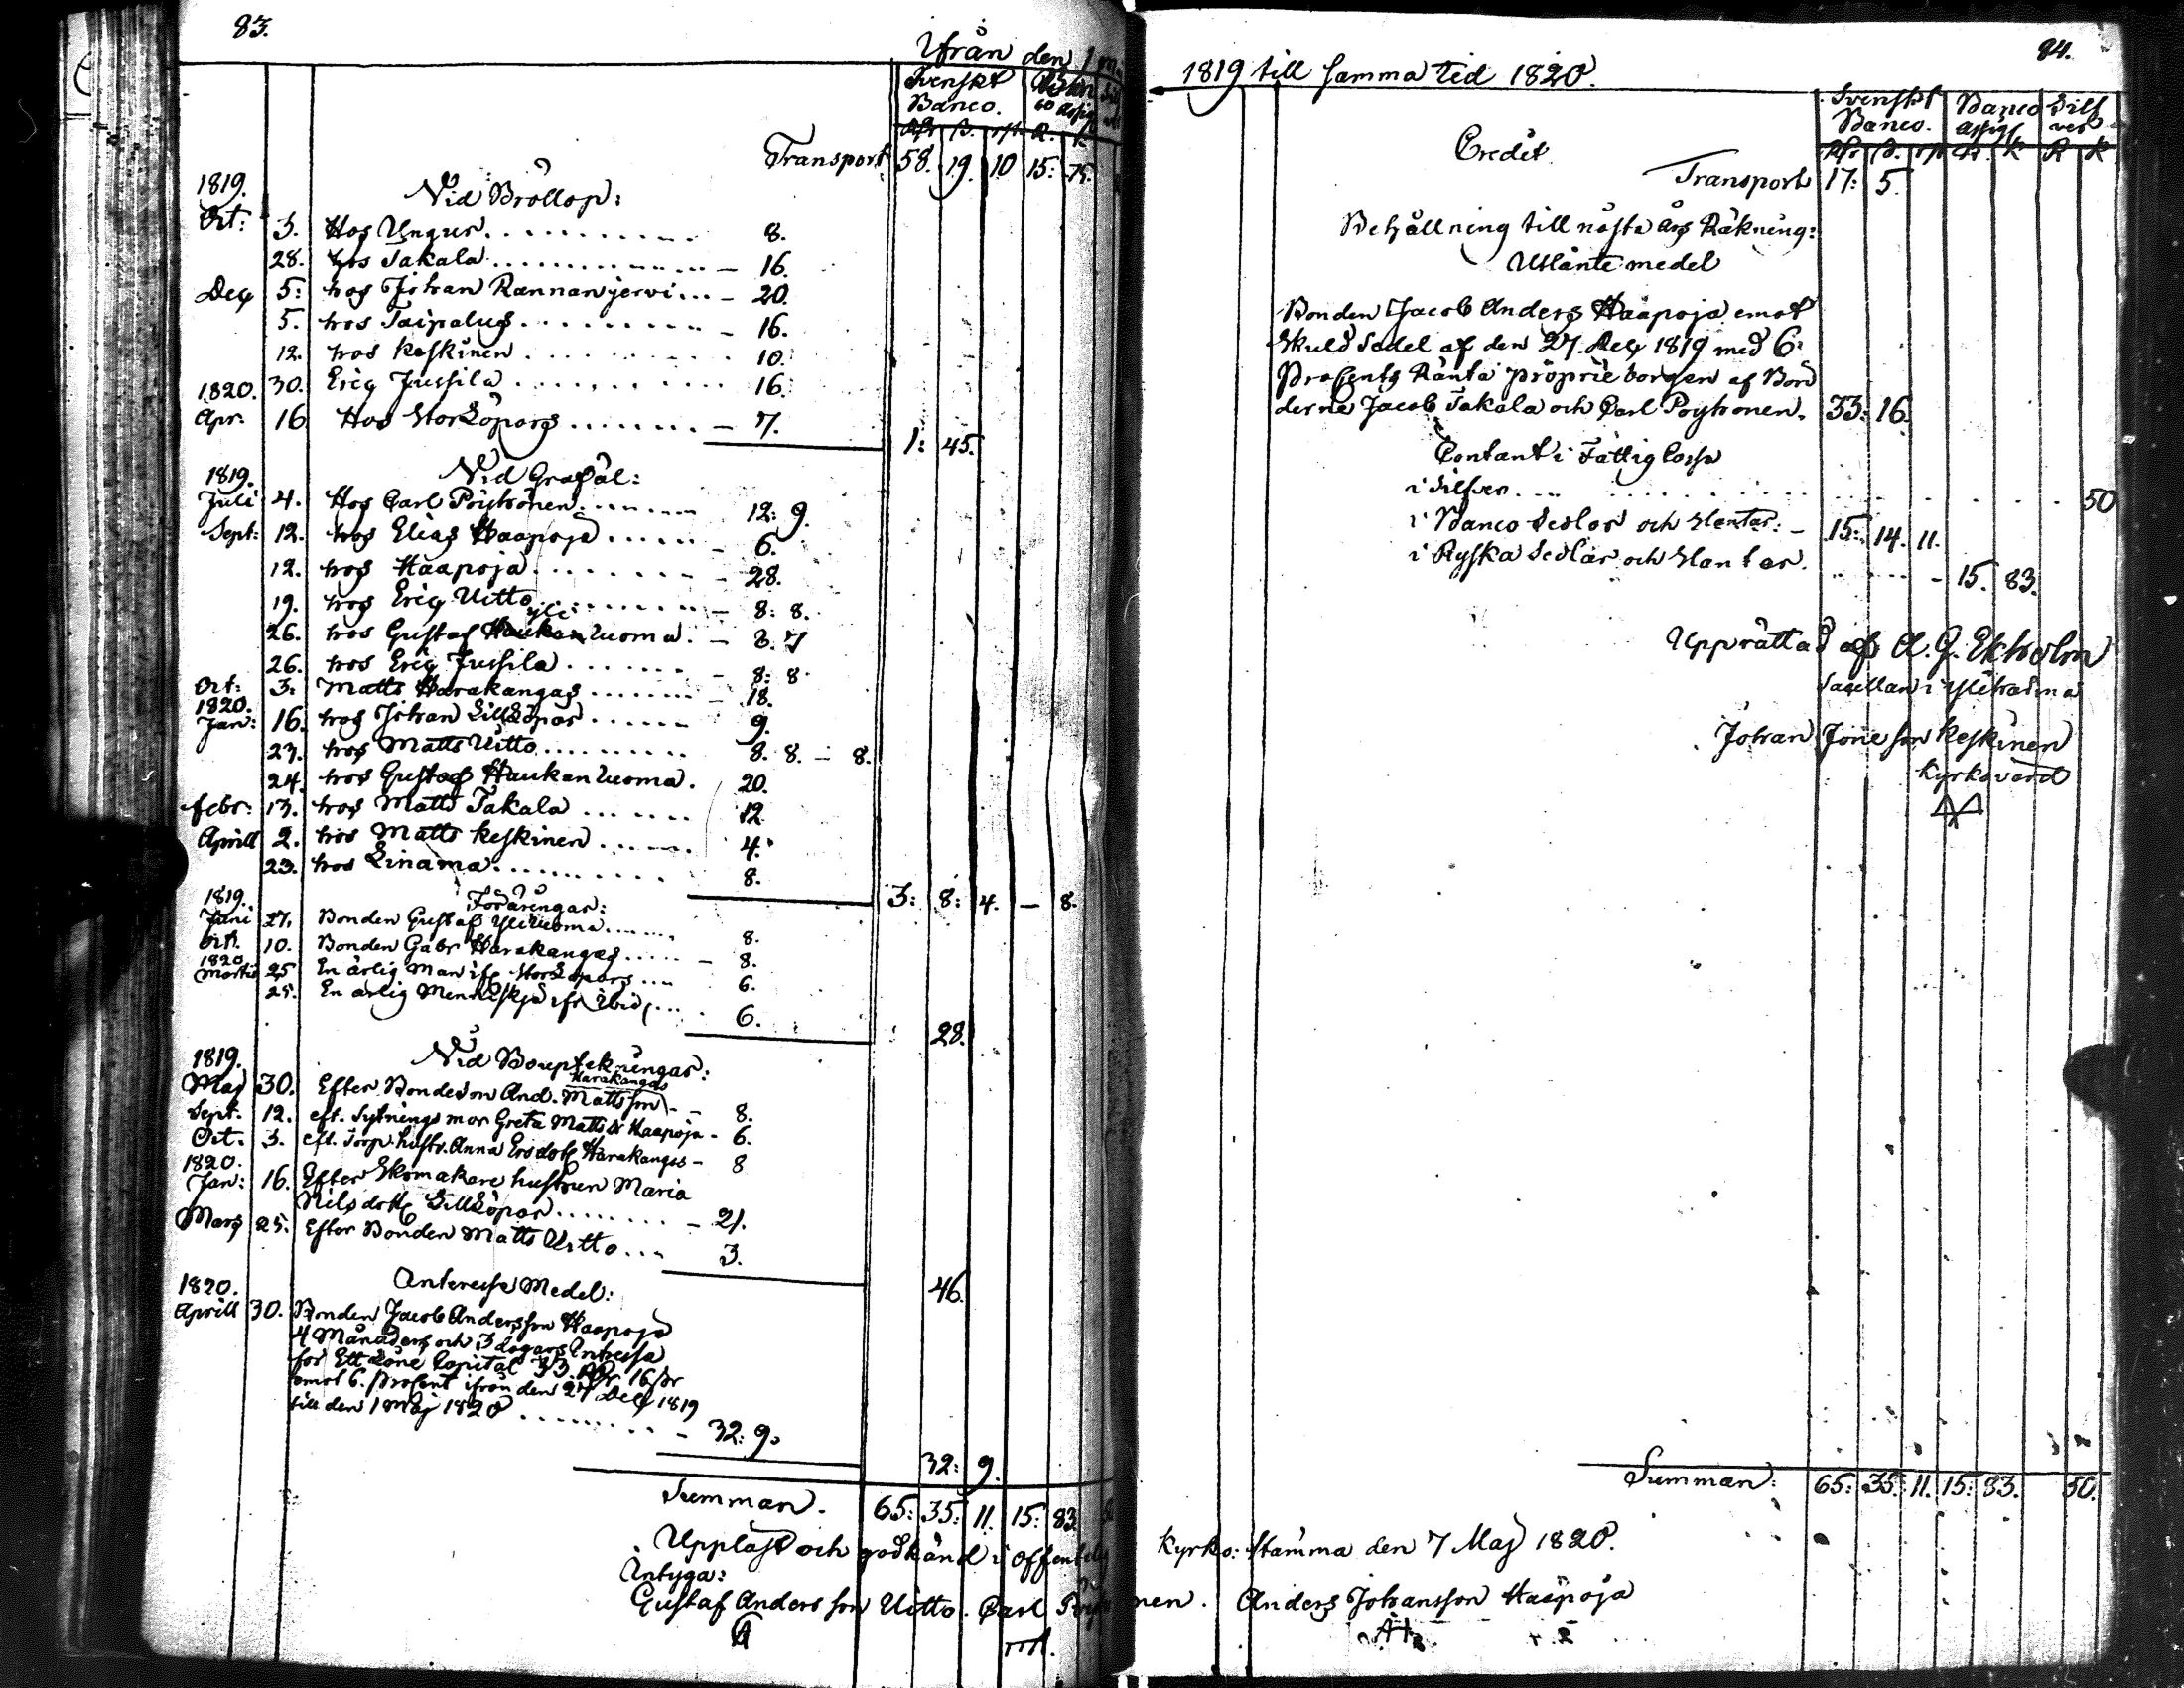 83.
Ifrån den 1
Svenskt Banco.
Rdr ß. rst. R. k
Transport 58. 19. 10 15: 75.
1819. Vid Bröllop:
Oct: 3. Hos Ungus........... 8.
28. hos Takala.............. – 16.
Decr 5: hos Johan Rannanjervi... – 20.
5. hos Taipalus......... – 16.
12. hos Keskinen........... 10.
1820. 30. Eric Jussila........... 16.
Apr. 16 Hos Storlöpars........ – 7.
1: 45.
1819. Vid Grafäl:
Juli 4. Hos Carl Pöyhönen....... 12: 9.
Sept: 12. hos Elias Haapoja..... – 6.
12. hos Haapoja........ – 28.
19. hos Eric Uitto......... – 8: 8.
yli
26. hos Gustaf Haukanluoma. – 8. 7
26. hos Eric Jussila....... – 8: 8.
Oct: 3: Matts Harakangas........ – 18.
1820.
Jan: 16. hos Johan Lilllöpar...... 9.
23. hos Matts Uitto.......... 8. 8. – 8.
24. hos Gustaf Haukanluoma. 20.
febr: 13. hos Matts Takala....... 12.
Aprill 2. hos Matts Keskinen...... 4.
23. hos Linama........... 8.
3: 8: 4. – 8.
1819. Föräringar:
Juni 27. Bonden Gustaf Yliluoma....... 8.
Oct. 10. Bonden Gabr Harakangas..... – 8.
1820
Martii 25 En ärlig Man ifr Storlöpars.... 6.
25. En ärlig Menniskja ifr ibid.... 6.
28.
1819. Vid Bouptekningar:
Harakangas
Maj 30. Efter Bondeson And. Mattsson – – 8.
Sept. 12. eft. Sytningsmor Greta Mattsdr Haapoja – 6.
Oct. 3. eft. Torp. hustr. Anna Ersdotr Harakangas – 8
1820.
Jan: 16. Efter Skomakare hustrun Maria
Nilsdottr Lilllöpar........ – 21.
Mars 25. Efter Bonden Matts Uitto.... 3.
46.
1820. Interesse Medel:
Aprill 30. Bonden Jacob Andersson Haapoja
4 Månaders och 3 dagars Intresse
för Ett Låne Capital 33 Rdr 16 ßr
emot 6. procent ifrån den 27 Decr 1819
till den 1 Maj 1820......... – 32: 9.
32: 9.
Summan. 65: 35: 11. 15: 83
Uppläst och godkänd i offentelig
Intyga:
Gustaf Andersson Uitto. Carl Pöyhö
84.
1819 till samma tid 1820.
Svenskt Banco. Banco Assigt Silfver
Rdr ß. rst R. k R k
Credit
Transport 17: 5.
Behållning till nästa års Räkning:
Utlånte medel
Bonden Jacob Anders Haapoja emot
Skuldsedel af den 27. Decr 1819 med 6:
Procents Ränta proprie borgen af Bön
derne Jacob Takala och Carl Poyhonen. 33: 16.
Contant i Fattig Cassa
i silfver.... 50
i Banco Sedlar och slantar: – 15: 14. 11.
i Ryska Sedlar och slantar. – 15. 83.
Upprättad af A. G. Ekholm
Sacellan i Ylihärmä
Johan Joneson Keskinen
Kyrkovärd
Summan: 65: 35. 11. 15: 83. 50.
Kyrko: Stämma den 7 Maj 1820.
nen. Anders Johansson Haapoja